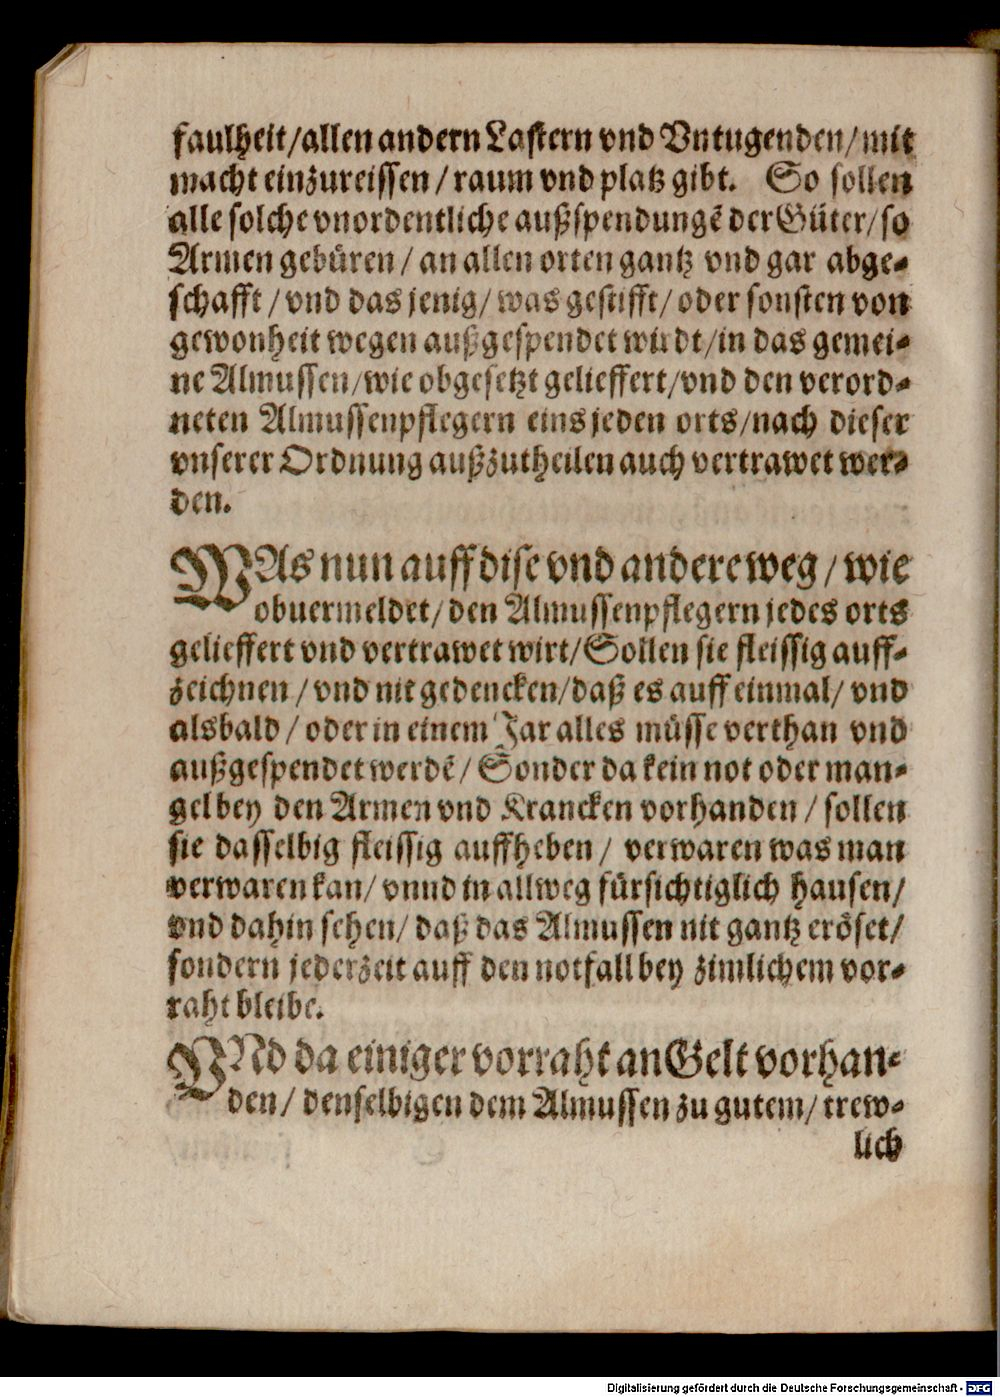 faulheit/allen andern Lastern vnd Vntugenden/mit
macht einzureissen/raum vnd platz gibt. So sollen
alle solche vnordentliche außspendungē der Güter/so
Armen gebüren/an allen orten gantz vnd gar abge-
schafft/vnd das jenig/was gestifft/oder sonsten von
gewonheit wegen außgespendet wirdt/in das gemei-
ne Almussen/wie obgesetzt gelieffert/vnd den verord-
neten Almussenpflegern eins jeden orts/nach dieser
vnserer Ordnung außzutheilen auch vertrawet wer-
den.
WAs nun auff dise vnd andere weg/wie
obuermeldet/den Almussenpflegern jedes orts
gelieffert vnd vertrawet wirt/Sollen sie fleissig auff-
zeichnen/vnd nit gedencken/daß es auff einmal/vnd
alsbald/oder in einem Jar alles müsse verthan vnd
außgespendet werdē/Sonder da kein not oder man-
gel bey den Armen vnd Krancken vorhanden/sollen
sie dasselbig fleissig auffheben/verwaren was man
verwaren kan/vnnd in allweg fürsichtiglich hausen/
vnd dahin sehen/daß das Almussen nit gantz eröset/
sondern jederzeit auff den notfall bey zimlichem vor-
raht bleibe.
VNd da einiger vorraht an Gelt vorhan-
den/denselbigen dem Almussen zu gutem/trew-
lich
Digitalisierung gefördert durch die Deutsche Forschungsgemeinschaft - DFG